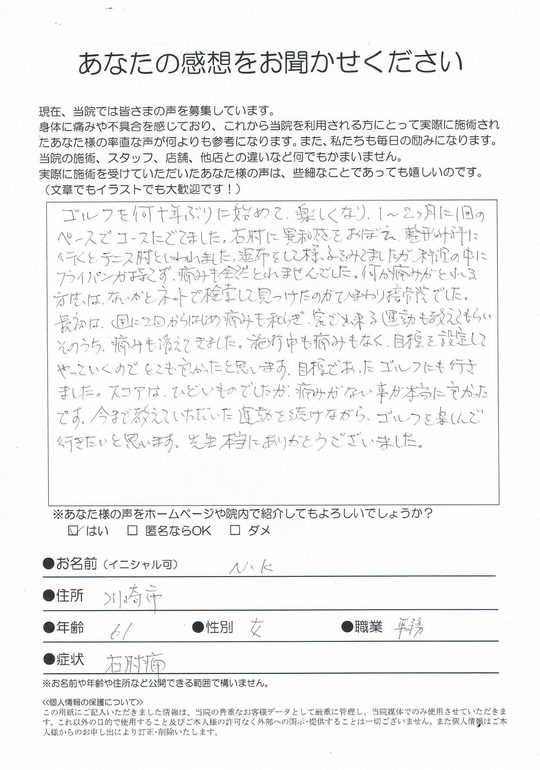 あなたの感想をお聞かせください
現在、当院では皆さまの声を募集しています。
身体に痛みや不具合を感じており、これから当院を利用される方にとって実際に施術され
たあなた様の率直な声が何よりも参考になります。また、私たちも毎日の励みになります。
当院の施術、スタッフ、店舗、他店との違いなど何でもかまいません。
実際に施術を受けていただいたあなた様の声は、些細なことであっても嬉しいのです。
（文章でもイラストでも大歓迎です！）
ゴルフを何十年ぶりに始めて、楽しくなり、1〜2ヶ月に1回の
ペースでコースにでてました。右肘に異和感をおぼえ、整形外科に
行くとテニス肘といわれました。湿布をして様子をみてましたが、料理の中に
フライパンが持てず、痛みも全然とれませんでした。何か痛みがとれる
方法はないかとネットで検索して見つけたのがひまわり接骨院でした。
最初は、週に2回からはじめ痛みも和らぎ、家で出来る運動も教えてもらい
そのうち、痛みも消えてきました。施術中も痛みもなく、目標を設定して
やっていくのでとても良かったと思います。目標であったゴルフにも行き
ました。スコアは、ひどいものでしたが、痛みがない事が本当に良かった
です。今まで教えていただいた運動を続けながら、ゴルフを楽しんで
行きたいと思います。先生本当にありがとうございました。
※あなた様の声をホームページや院内で紹介してもよろしいでしょうか？
☑ はい □ 匿名ならOK □ ダメ
●お名前（イニシャル可） N・K
●住所 川崎市
●年齢 61 ●性別 女 ●職業 事務
●症状 右肘痛
※お名前や年齢や住所など公開できる範囲で構いません。
≪個人情報の保護について≫
この用紙にご記入いただきました情報は、当院の貴重なお客様データとして厳重に管理し、当院媒体でのみ使用させていただきま
す。これ以外の目的で使用すること及びご本人様の許可なく外部への開示・提供することは一切ございません。また個人情報はご本
人様からのお申し出により訂正・削除いたします。